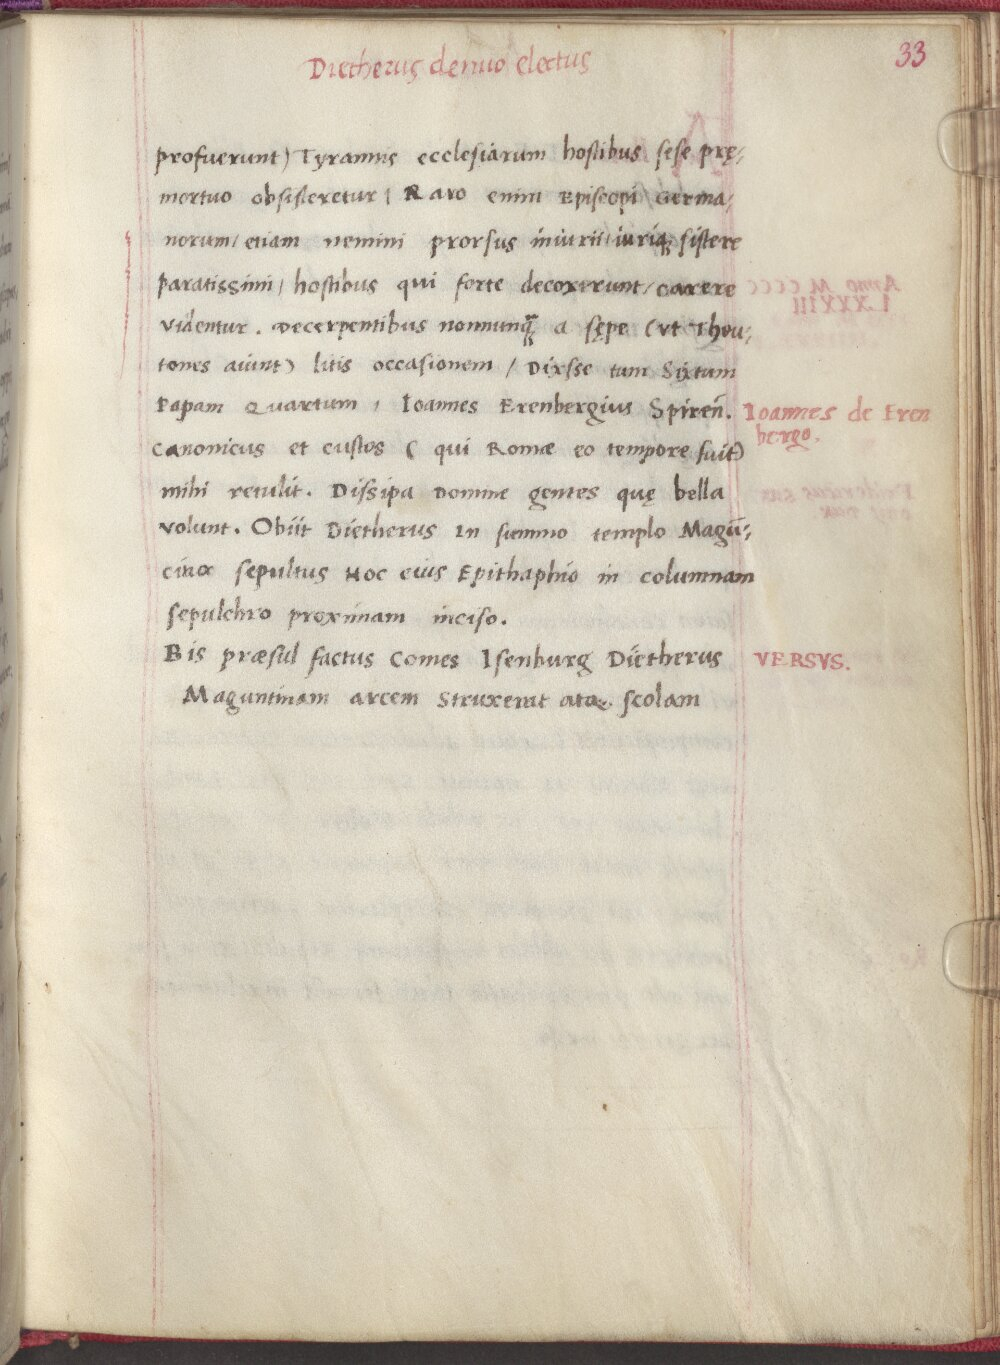 Dietherus denuo electus
33
profuerunt) Tyrannis ecclesiarum hostibus sese prę,
mortuo obsisteretur / Raro enim Episcopi Germa,
norum / etiam nemini prorsus iniurii / iuriq; sistere
paratissimi / hostibus qui forte decoxerunt / carere
videntur. Decerpentibus nonnunq̃ a sępe (vt Theu,
tones aiunt) litis occasionem / Dixsse tum Sixtum
Papam Quartum, Ioannes Erenbergius Spireñ.
Ioannes de Eren
bergo.
Canonicus et custos ( qui Romæ eo tempore fuit)
mihi retulit. Dissipa Domine gentes quę bella
volunt. Obiit Dietherus In summo templo Magū,
cinæ sepultus Hoc eius Epithaphio in columnam
sepulchro proximam inciso.
Bis præsul factus Comes Isenburg Dietherus
VERSVS.
Maguntinam arcem Struxerat atq; scolam